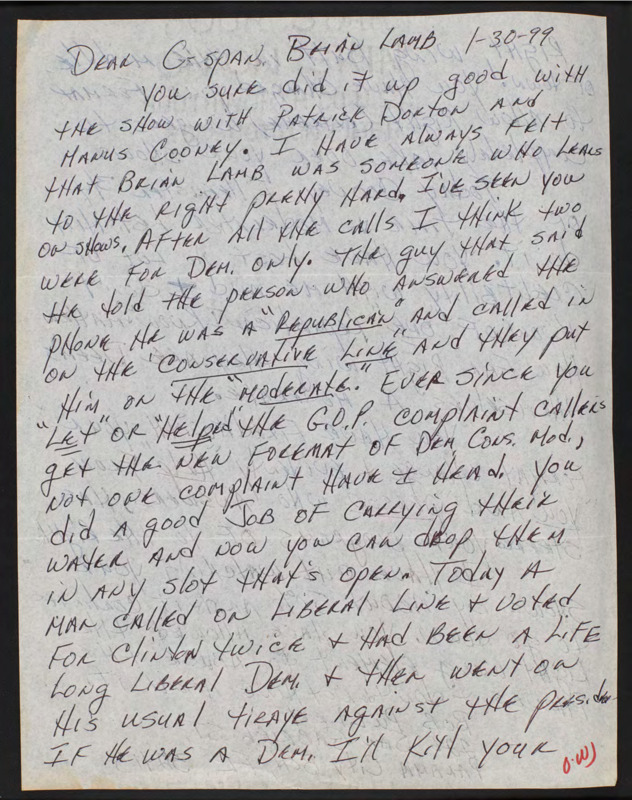 DEAR C-SPAN. BRIAN LAMB 1-30-99
YOU SURE did it up good with
tHE SHOW WITH PATRICK DORTON AND
MANUS COONEY. I HAVE ALWAYS FELT
tHAT BRIAN LAMB WAS SOMEONE WHO LEANS
to tHE RIGHT PRETTY HARD. I'VE SEEN YOU
ON SHOWS. AFTER All tHE CALLS I tHINK two
WERE FOR DEM. ONLY. THE guy tHAt SAid
HE told tHE PERSON WHO ANSWERED tHE
PHONE HE WAS A "REPUBLICAN" AND CALLED iN
ON tHE "CONSERVATIVE LINE" AND tHEY PUT
HIM ON tHE "MODERATE." EVER SINCE YOU
"LET" OR "HELPED" tHE G.O.P. COMPLAINT CALLERS
GET tHE NEW FOREMAT OF DEM, CONS. MOD.,
NOT ONE COMPLAINT HAVE I HEAD. YOU
did A good JOB OF CARRYING tHEIR
WATER AND NOW YOU CAN dROP tHEM
IN ANY SLOT tHAT'S OPEN. TODAY A
MAN CALLED ON LIBERAL LINE + VOTED
FOR CLINTON TWICE + HAD BEEN A LIFE
LONG LIBERAL DEM. + tHEN WENT ON
HIS USUAL tIRAVE AGAINST tHE PRESIDEN-
IF HE WAS A DEM. I'll Kill YOUR